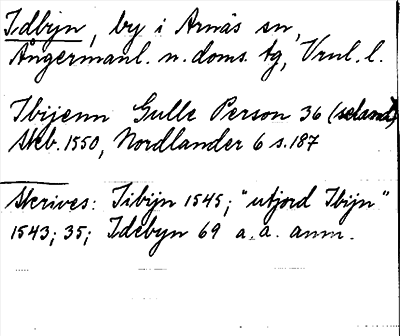 Idbyn, by i Arnäs sn,
Ångermanl. n. doms. tg, Vrnl. l.
Ibijenn Gulle Person 36 (seland)
Skb. 1550, Nordlander 6 s. 187
Skrives: Tibijn 1545; "utjord Ibijn"
1543; 35; Idebyn 69 a. a. anm.